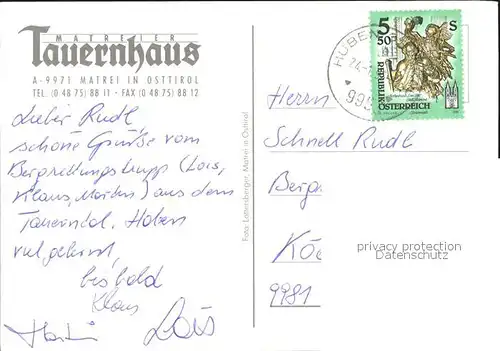 MATREIER
Tauernhaus
A-9971 MATREI IN OSTTIROL
TEL. (0 48 75) 88 11 - FAX (0 48 75) 88 12
Lieber Rudl
schöne Grüße vom
Bergrettungstrupp (Lois,
Klaus, Martin) aus dem
Tauerntal. Haben
viel gelernt,
bis bald
Klaus
Martin Lois
Foto: Lottersberger, Matrei in Osttirol
HUBEN
5 S
50
REPUBLIK
ÖSTERREICH
Herrn
Schnell Rudl
Berg
Kö
9981
privacy protection
Datenschutz